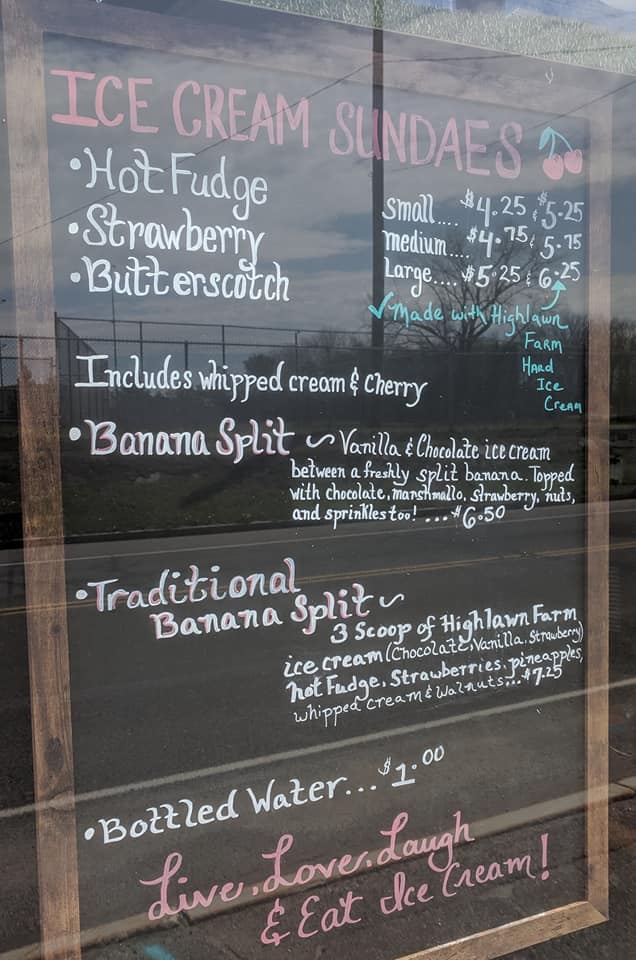 ICE CREAM SUNDAES
•Hot Fudge
•Strawberry
•Butterscotch
small.... $4.25 & $5.25
medium.... $4.75 & 5.75
Large.... $5.25 & 6.25
✓Made with Highlawn
Farm
Hard
Ice
Cream
Includes whipped cream & Cherry
•Banana Split ~ Vanilla & Chocolate ice cream
between a freshly split banana. Topped
with chocolate, marshmallo, strawberry, nuts,
and sprinkles too! ... $6.50
•Traditional
Banana Split ~
3 Scoop of Highlawn Farm
ice cream (Chocolate, Vanilla, Strawberry)
hot Fudge, Strawberries, pineapples,
whipped cream & Walnuts... $7.25
•Bottled Water... $1.00
Live, Love, Laugh
& Eat Ice Cream!